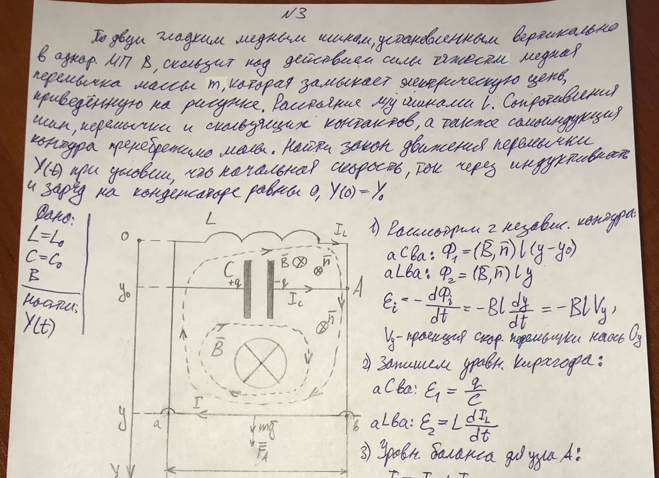 N3
По двум гладким медным шинам, установленным вертикально
в однор. МП B, скользит под действием силы тяжести медная
перемычка массы m, которая замыкает электрическую цепь,
приведённую на рисунке. Расстояние м/у шинами l. Сопротивления
шин, перемычки и скользящих контактов, а также самоиндукция
контура пренебрежимо малы. Найти закон движения перемычки
Y(t) при условии, что начальная скорость, ток через индуктивность
и заряд на конденсаторе равны 0, Y(0)=Y₀
Дано:
L=L₀
C=C₀
B
Найти:
Y(t)
L
I_L
0
C
+q
-q
B⃗
n⃗
I_C
A
y₀
n⃗
B⃗
I
y
a
b
mg⃗
F⃗_A
Y
1) Рассмотрим 2 независ. контура:
aCba: Φ₁=(B⃗,n⃗)l(y-y₀)
aLba: Φ₂=(B⃗,n⃗)ly
ε_i=-dΦ_i/dt=-Bl dy/dt=-BlV_y,
V_y-проекция скор. перемычки на ось Oy
2) Запишем уравн. Кирхгофа:
aCba: ε₁=q/C
aLba: ε₂=L dI_L/dt
3) Уравн. баланса для узла A: